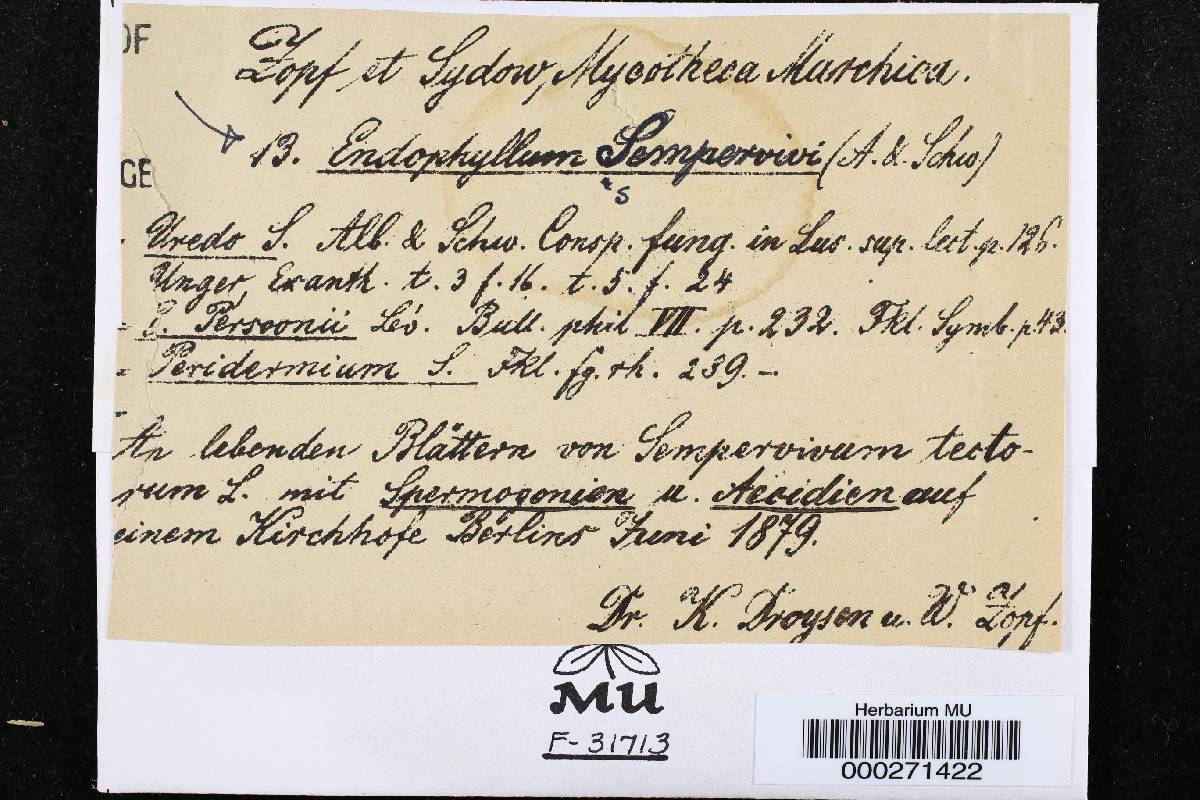 OF
Zopf et Sydow, Mycotheca Marchica.
13. Endophyllum Sempervivi (A. & Schw)
GE
s
Uredo S. Alb. & Schw. Consp. fung. in Lus. sup. lect. p. 126.
Unger, Exanth. t. 3 f. 16. t. 5. f. 24
= E. Persoonii Lév. Bull. phil VII. p. 232. Fkl. Symb. p. 43.
= Peridermium S. Fkl. fg. rh. 239. –
An lebenden Blättern von Sempervivum tecto-
rum L. mit Spermogonien u. Aecidien auf
einem Kirchhofe Berlins Juni 1879.
Dr. K. Droysen u. W. Zopf.
MU
F-31713
Herbarium MU
000271422